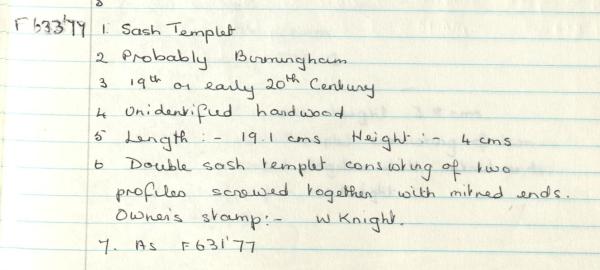 F633'79 1. Sash Templet
2 Probably Birmingham
3 19th or early 20th Century
4 Unidentified hardwood
5 Length :- 19.1 cms Height :- 4 cms
6 Double sash templet consisting of two
profiles screwed together with mitred ends.
Owner's stamp:- W Knight.
7. As F631'77